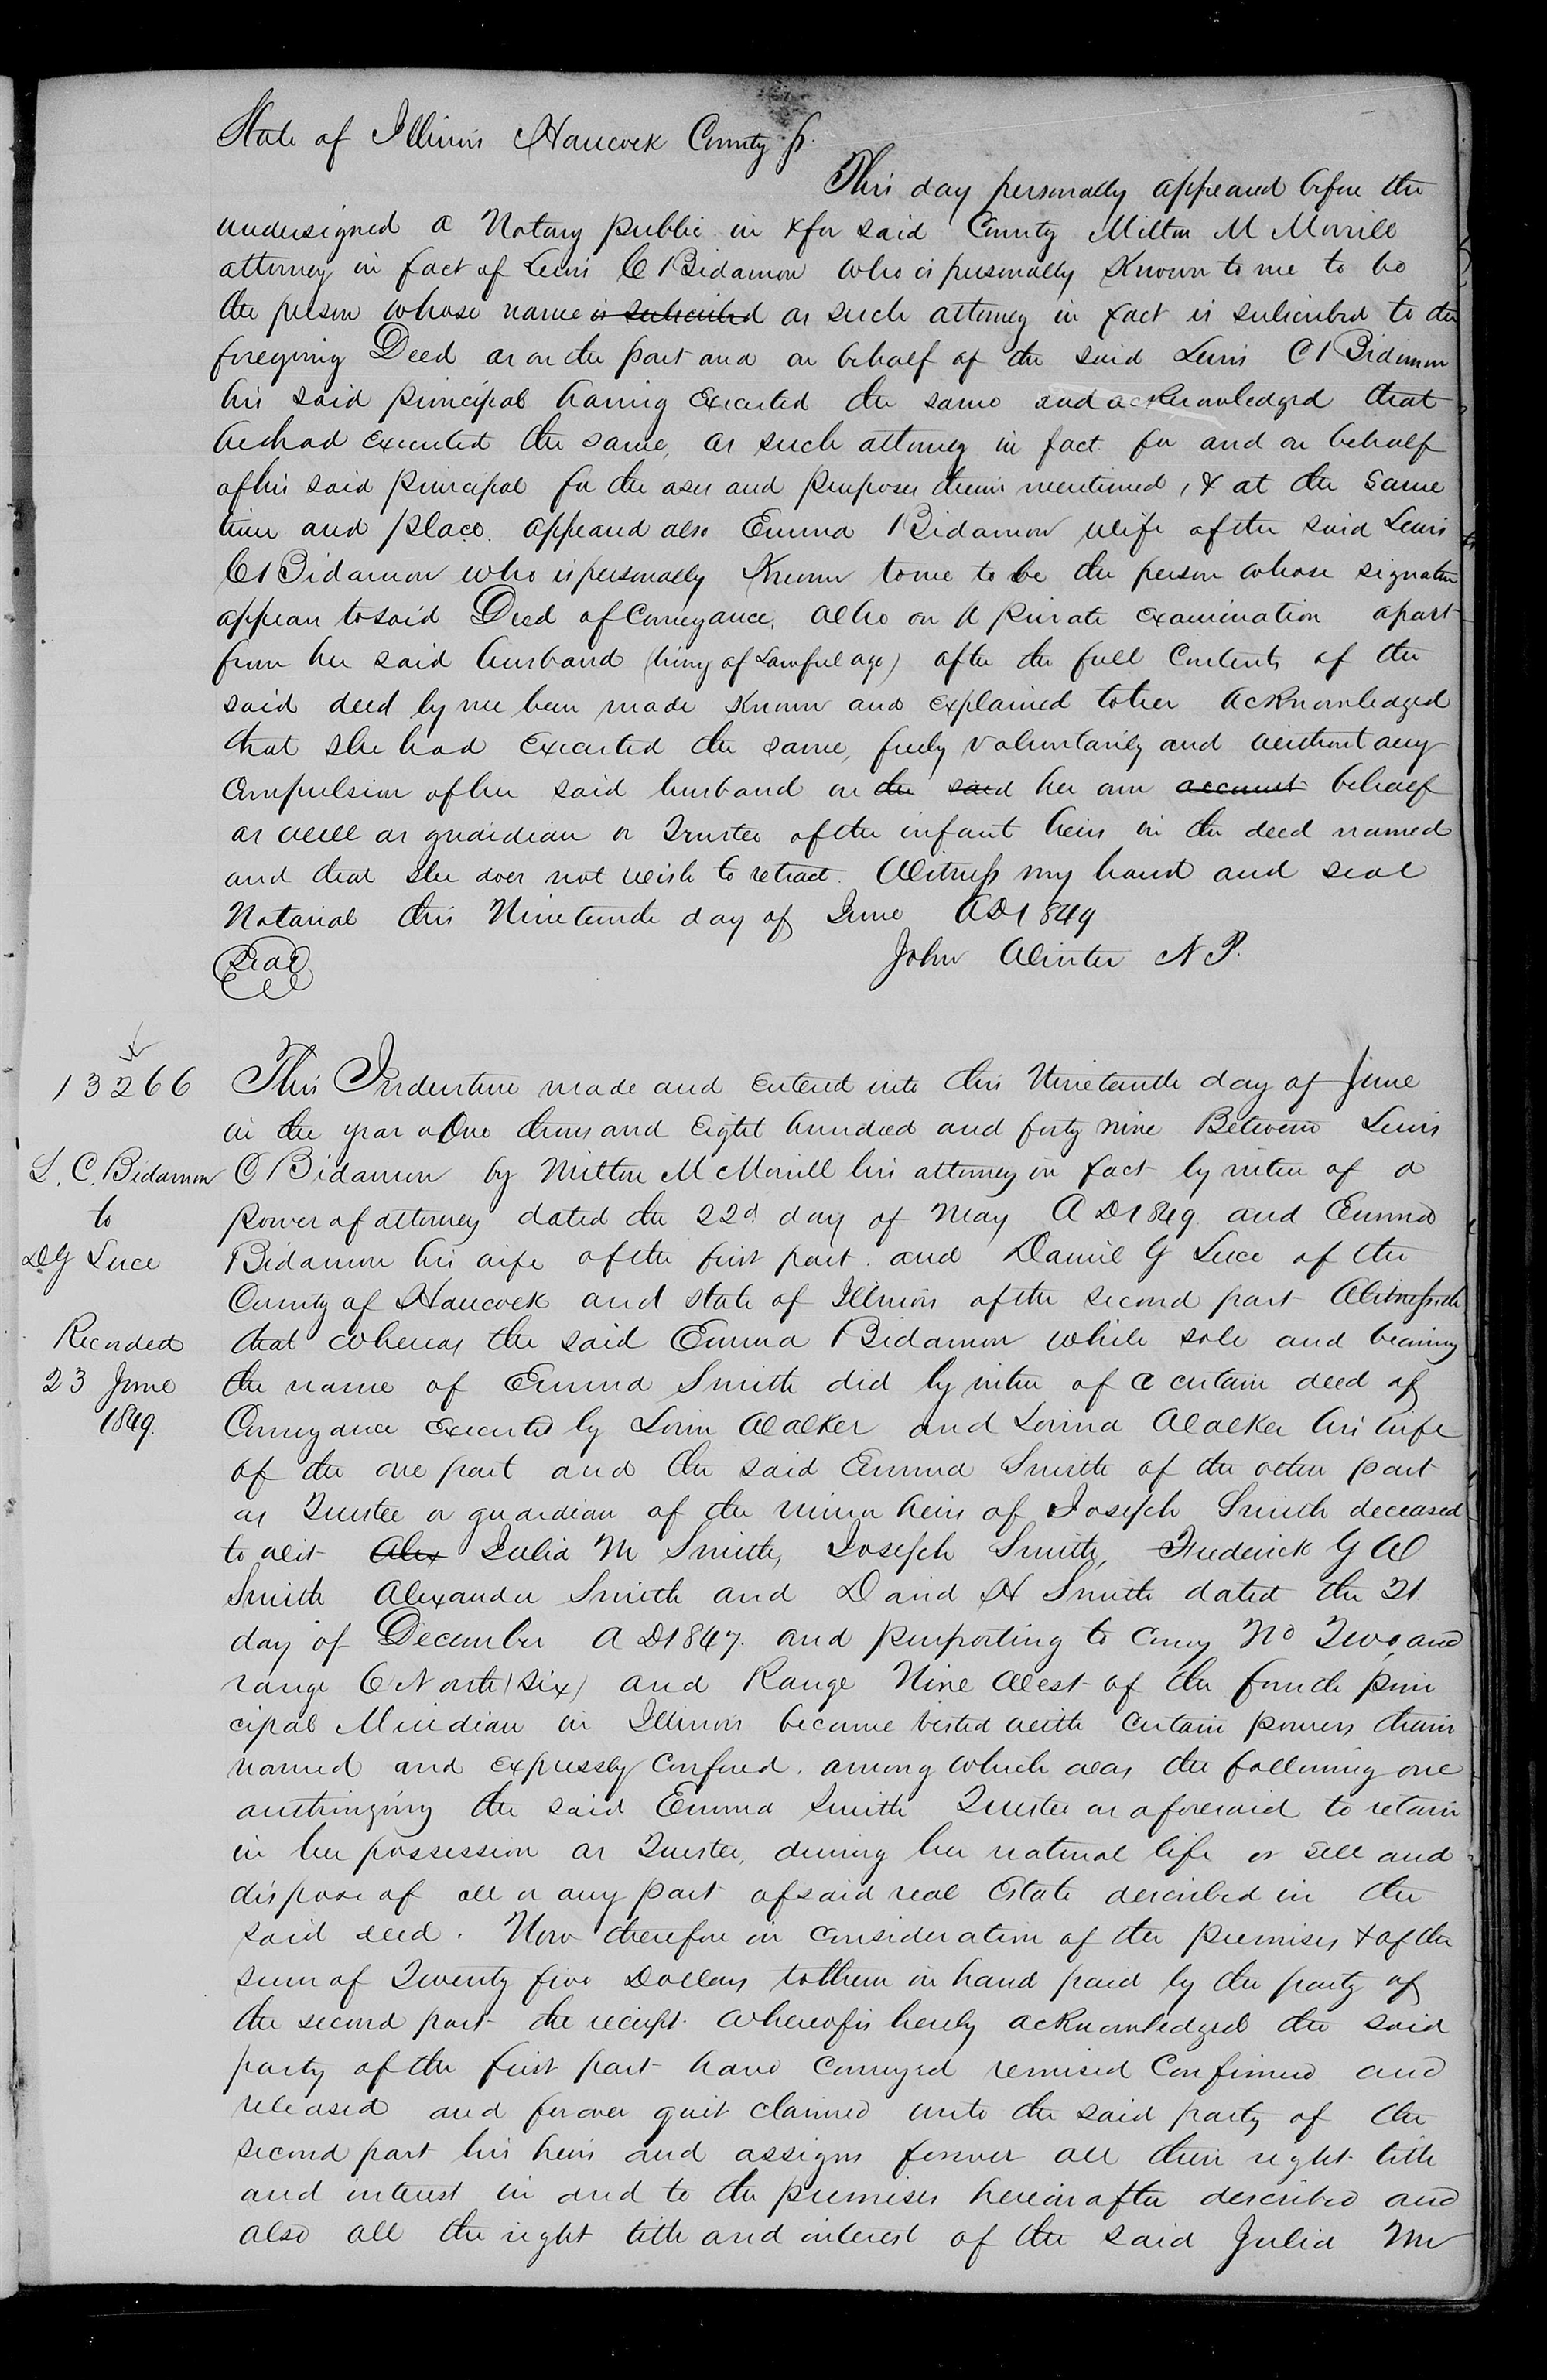 State of Illinois Hancock County ss.
This day personally appeared before the
undersigned a Notary public in & for said County Milton M Morrill
attorney in fact of Lewis C Bidamon who is personally Known to me to be
the person whose name is subscribed as such attorney in fact is subscribed to the
foregoing Deed as on the part and on behalf of the said Lewis C Bidamon
his said principal having Executed the same and acknowledged that
he had executed the same, as such attorney in fact for and on behalf
of his said principal for the uses and purposes therein mentioned, & at the same
time and place. appeared also Emma Bidamon wife of the said Lewis
C Bidamon who is personally Known to me to be the person whose signature
appears to said Deed of Conveyance. also on a private examination apart
from her said husband (being of Lawful age) after the full Contents of the
said deed by me been made Known and explained to her acknowledged
that she had Executed the same, freely voluntarily and without any
Compulsion of her said husband on the said her own account behalf
as well as guardian or Trustee of the infant heirs in the deed named
and that she does not wish to retract. Witness my hand and seal
Notarial this Nineteenth day of June AD 1849
Seal
John Winter N P.
13266
L. C. Bidamon
to
D G Luce
Recorded
23 June
1849.
This Indenture made and entered into this Nineteenth day of June
in the year One thousand Eight hundred and forty nine Between Lewis
C Bidamon by Milton M Morrill his attorney in fact by virtue of a
power of attorney dated the 22d. day of May A D 1849. and Emma
Bidamon his wife of the first part. and Daniel G Luce of the
County of Hancock and state of Illinois of the second part Witnesseth
that whereas the said Emma Bidamon while sole and bearing
the name of Emma Smith did by virtue of a certain deed of
Conveyance executed by Lorin Walker and Lovina Walker his wife
of the one part and the said Emma Smith of the other part
as Trustee or guardian of the minor heirs of Joseph Smith deceased
to wit Alex Julia M Smith, Joseph Smith, Frederick G W
Smith Alexander Smith and David H Smith dated the 21
day of December A D 1847. and purporting to convey No Two, and
range 6 North (six) and Range Nine West of the fourth prin
cipal Meridian in Illinois became vested with certain powers therein
named and expressly conferred. among which was the following one
authorizing the said Emma Smith Trustee as aforesaid to retain
in her possession as Trustee, during her natural life or sell and
dispose of all or any part of said real Estate described in the
said deed. Now therefore in consideration of the premises & of the
sum of Twenty five Dollars to them in hand paid by the party of
the second part the receipt whereof is hereby acknowledged the said
party of the first part have conveyed remised Confirmed and
released and forever quit claimed unto the said party of the
second part his heirs and assigns forever all their right title
and interest in and to the premises hereinafter described and
also all the right title and interest of the said Julia M